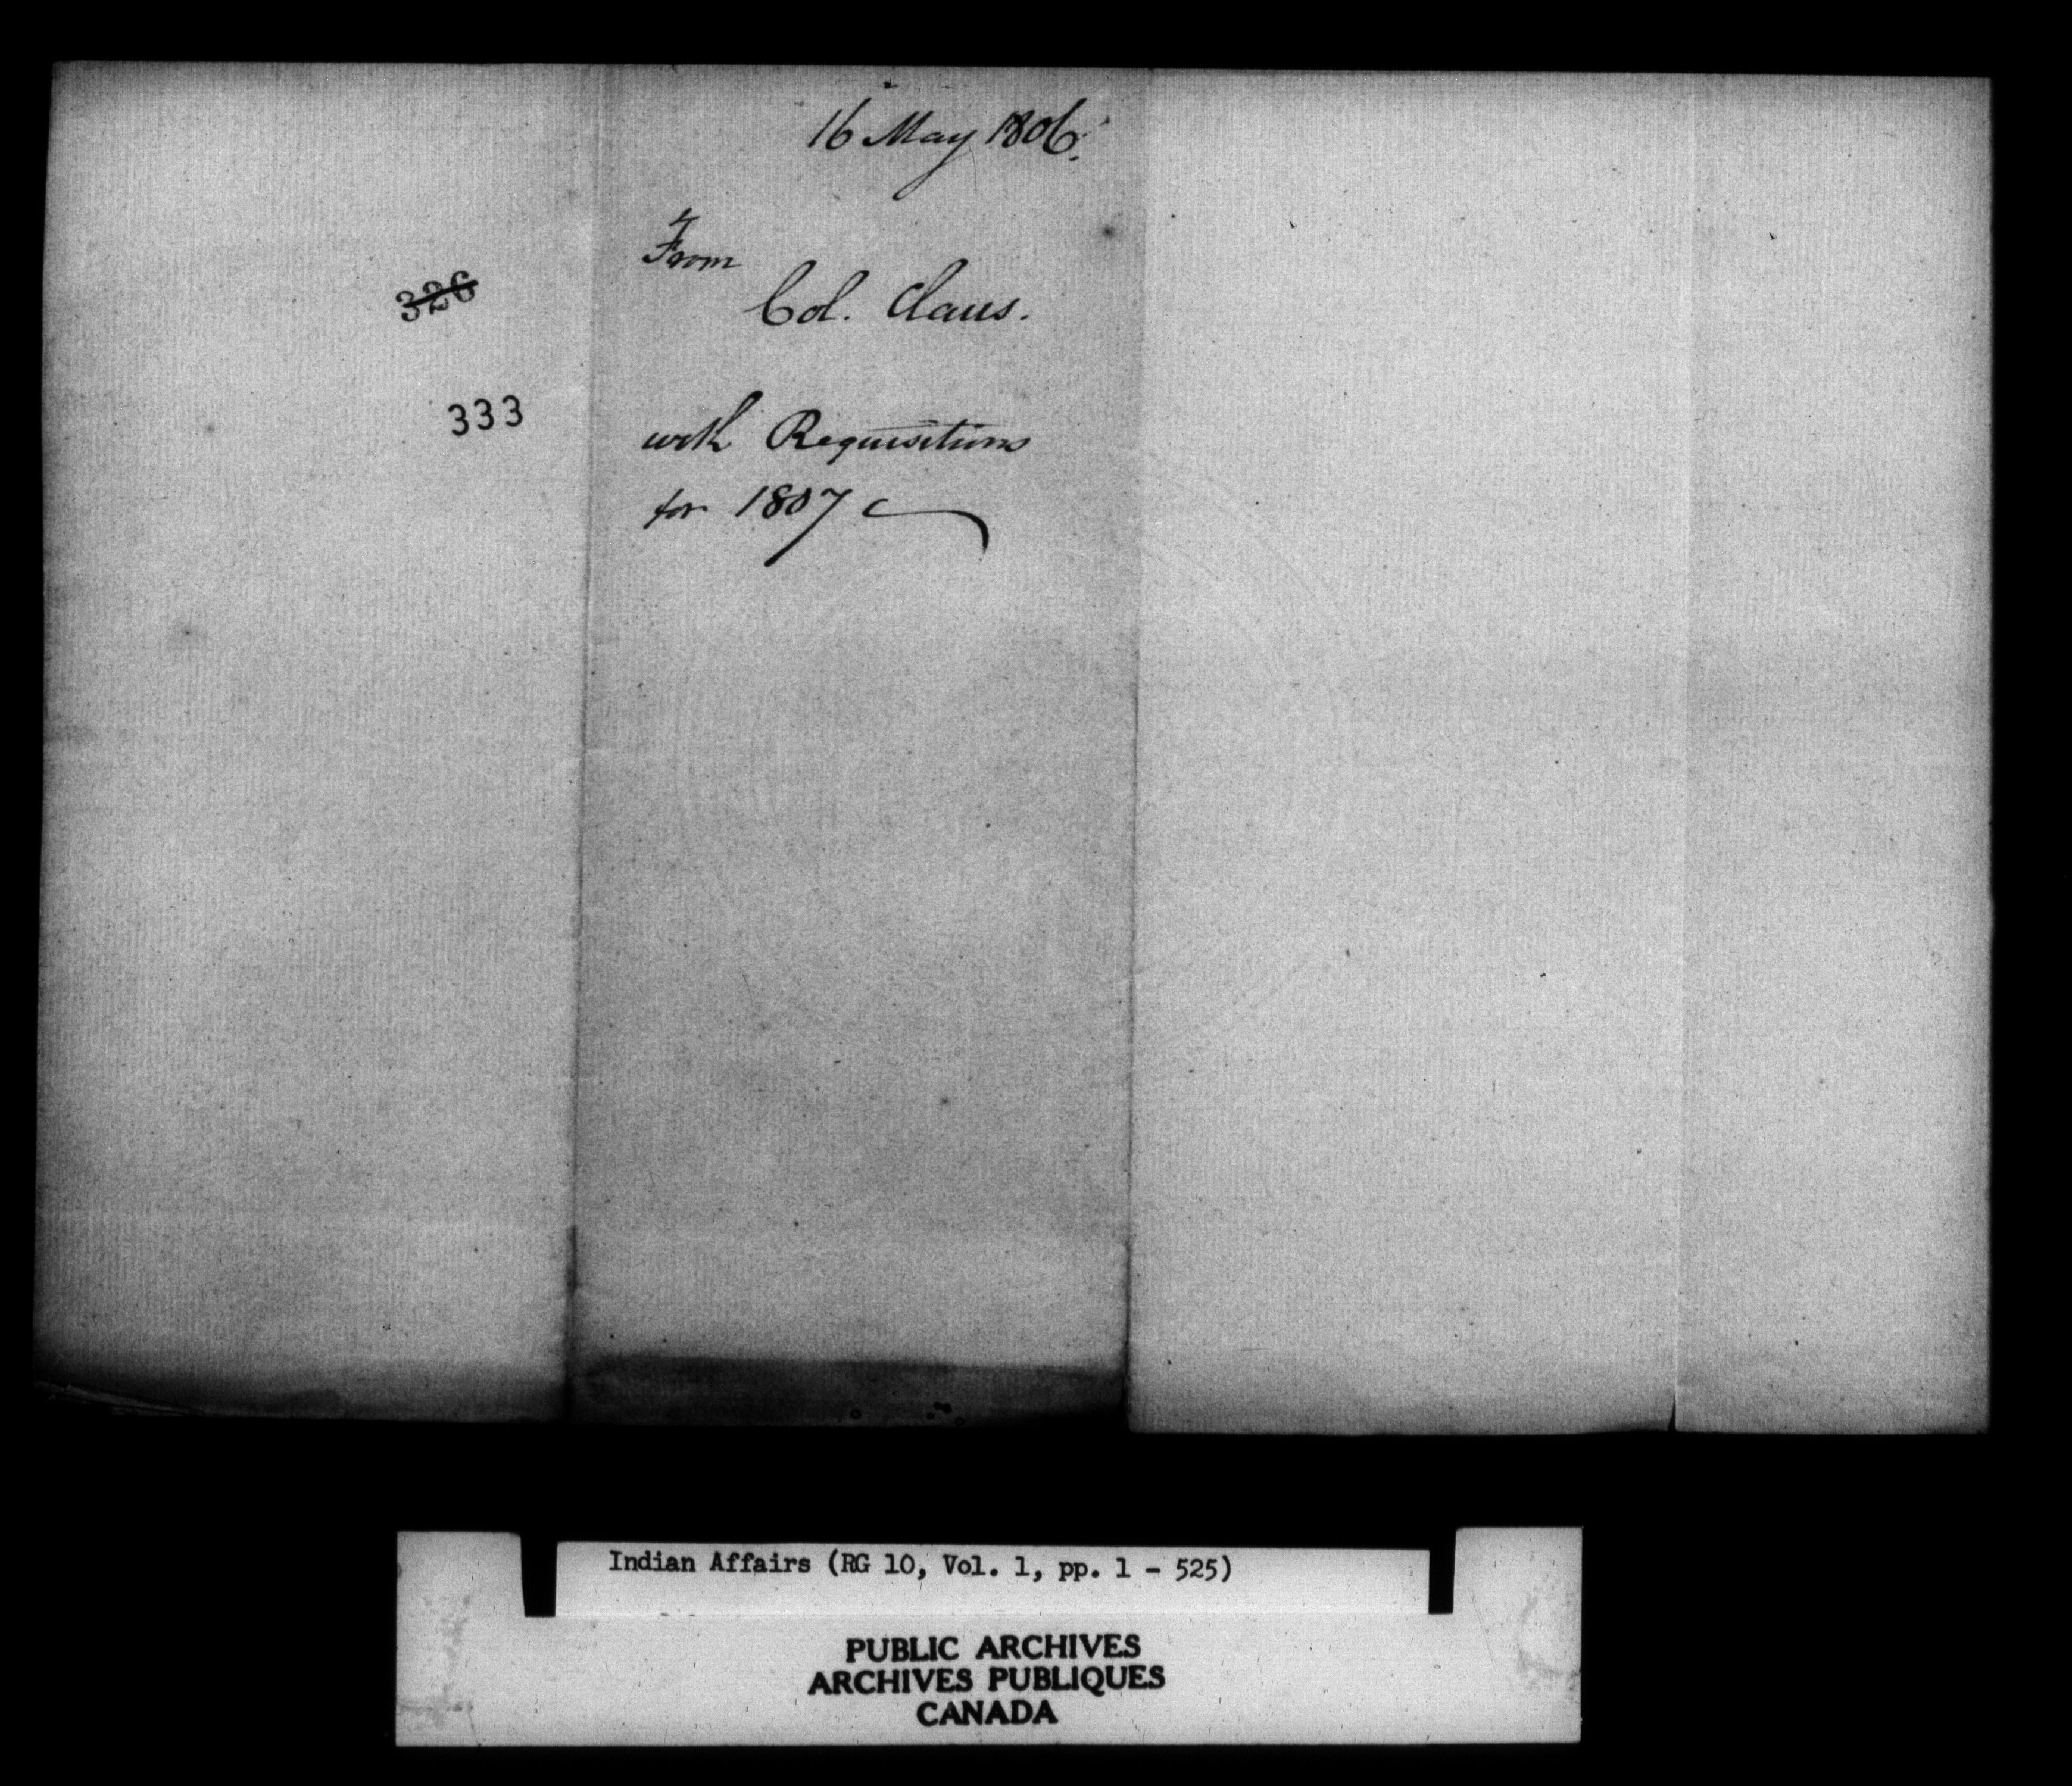 16 May 1806.
From
Col. Claus.
326
333
with Requisitions
for 1807
Indian Affairs (RG 10, Vol. 1, pp. 1 - 525)
PUBLIC ARCHIVES
ARCHIVES PUBLIQUES
CANADA